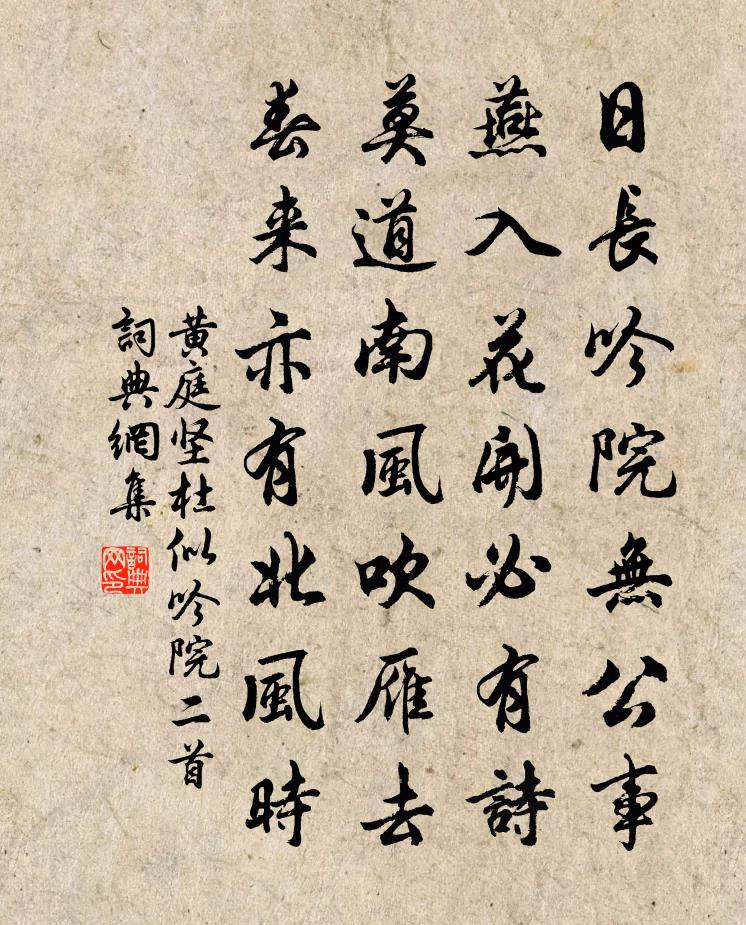 日長吟院無公事
燕入花開必有詩
莫道南風吹雁去
春来亦有北風時
黄庭坚杜似吟院二首
詞典網集
詞典网印